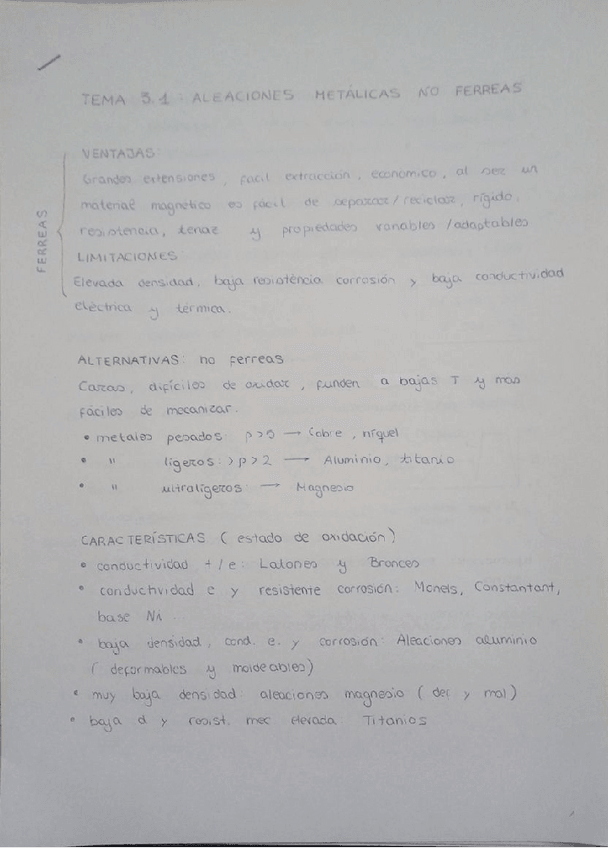 TEMA 5.1 : ALEACIONES METÁLICAS NO FERREAS
FERREAS
VENTAJAS:
Grandes extensiones, facil extracción, economico, al ser un
material magnetico es fácil de separar/reciclar, rígido,
resistencia, tenaz y propiedades variables/adaptables
LIMITACIONES:
Elevada densidad, baja resistencia corrosión y baja conductividad
eléctrica y térmica.
ALTERNATIVAS: no ferreas
Caras, difíciles de oxidar, funden a bajas T y mas
fáciles de mecanizar.
• metales pesados: ρ>5 → Cobre, níquel
• " ligeros: >ρ>2 → Aluminio, titanio
• " ultraligeros: → Magnesio
CARACTERÍSTICAS ( estado de oxidación)
• conductividad t/e: Latones y Bronces
• conductividad e y resistente corrosión: Monels, Constantant,
base Ni.
• baja densidad, cond. e. y corrosión: Aleaciones aluminio
( deformables y moldeables)
• muy baja densidad: aleaciones magnesio ( def y mol)
• baja d y resist. mec elevada: Titanios